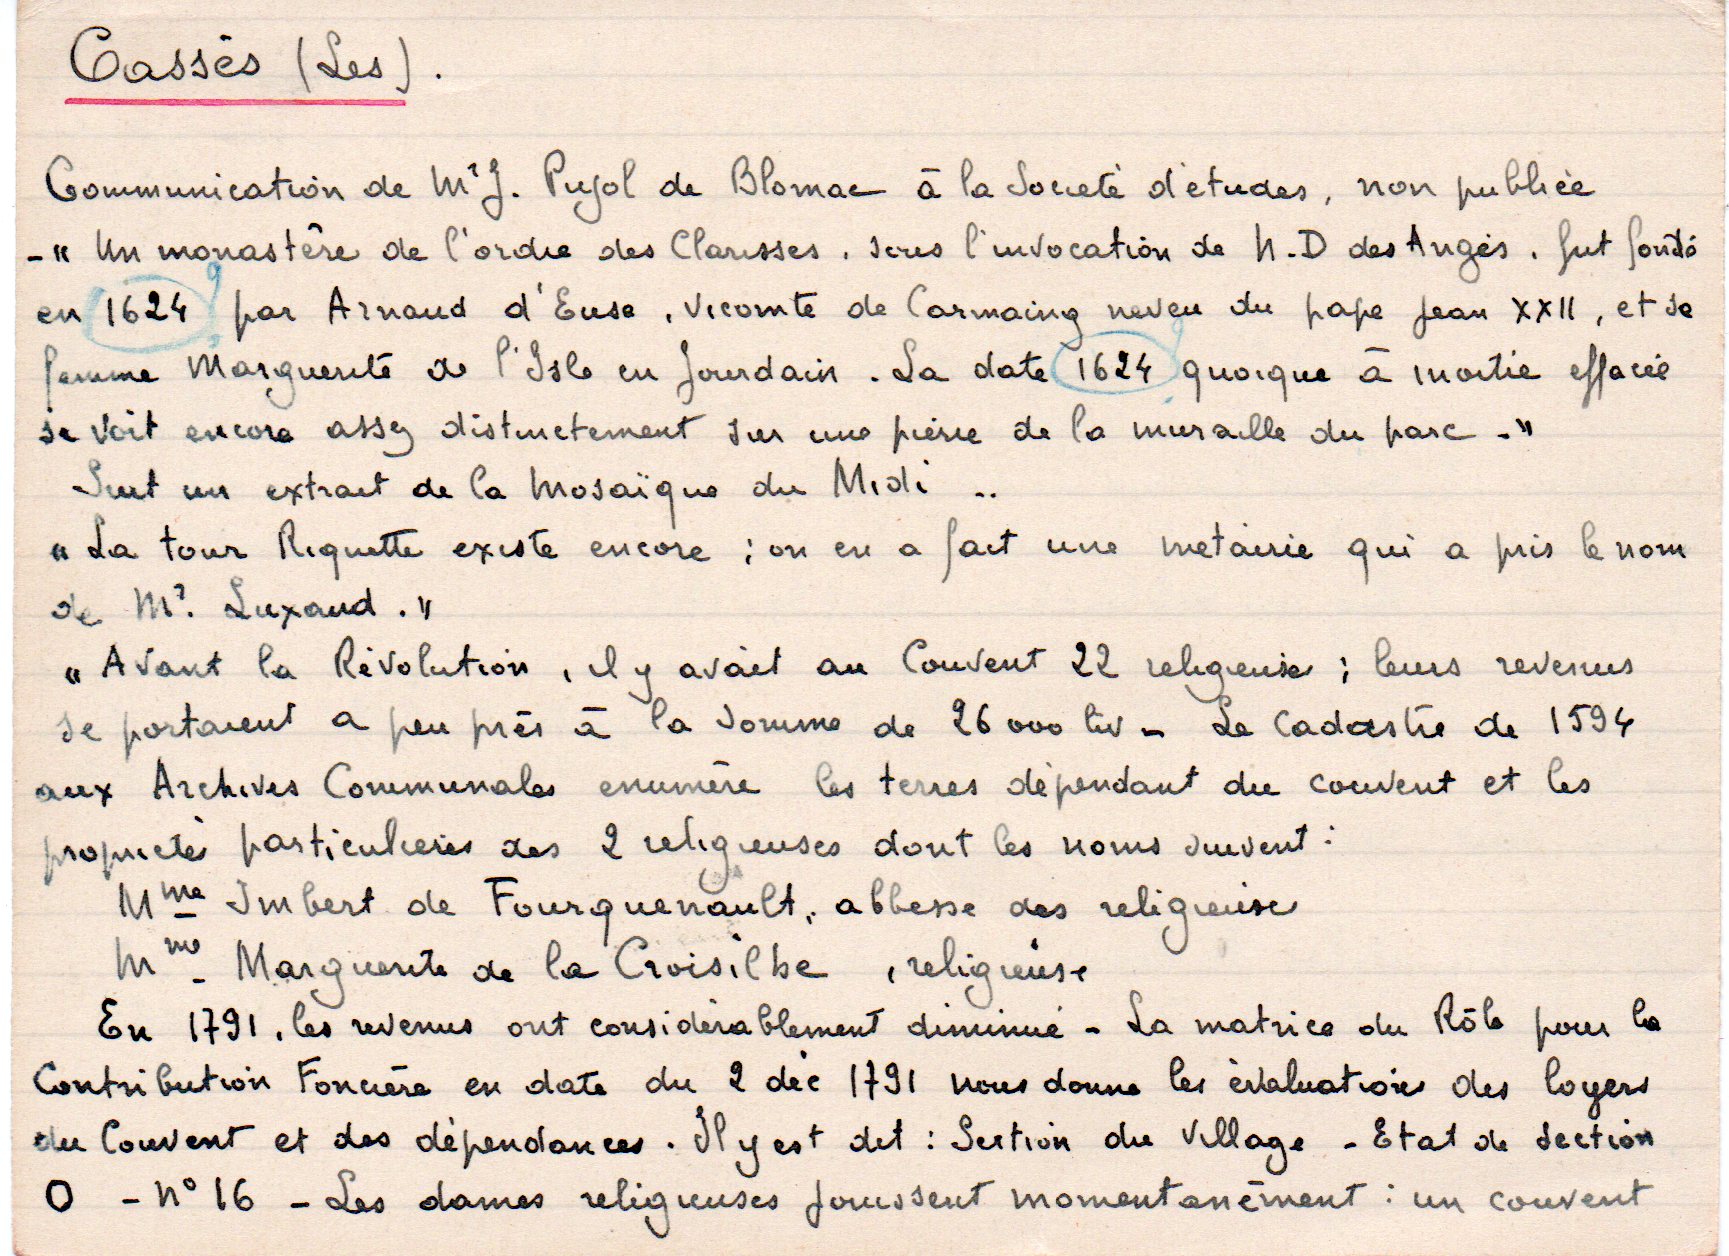 Cassés (Les).
Communication de Mr J. Pujol de Blomac à la Société d'études, non publiée
- " Un monastère de l'ordre des Clarisses, sous l'invocation de N.D des Anges, fut fondé
en 1624 ? par Arnaud d'Euse, vicomte de Carmaing neveu du pape Jean XXII, et sa
femme Marguerite de l'Isle en Jourdain. La date 1624 ? quoique à moitié effacée
se voit encore assez distinctement sur une pierre de la muraille du parc - "
Suit un extrait de la Mosaïque du Midi ..
" La tour Riquette existe encore ; on en a fait une métairie qui a pris le nom
de Mr. Luxaud. "
" Avant la Révolution, il y avait au Couvent 22 religieuses ; leurs revenus
se portaient a peu près à la somme de 26 000 liv - Le Cadastre de 1594
aux Archives Communales enumère les terres dépendant du couvent et les
propriétés particulières des 2 religieuses dont les noms suivent :
Mme Imbert de Fourquenault, abbesse des religieuses
Mme Marguerite de la Croisilhe, religieuse
En 1791, les revenus ont considérablement diminué - La matrice du Rôle pour la
Contribution Foncière en date du 2 déc 1791 nous donne les évaluations des loyers
du Couvent et des dépendances. Il y est dit : Section du Village - Etat de section
O - n° 16 - Les dames religieuses jouissent momentanément : un couvent